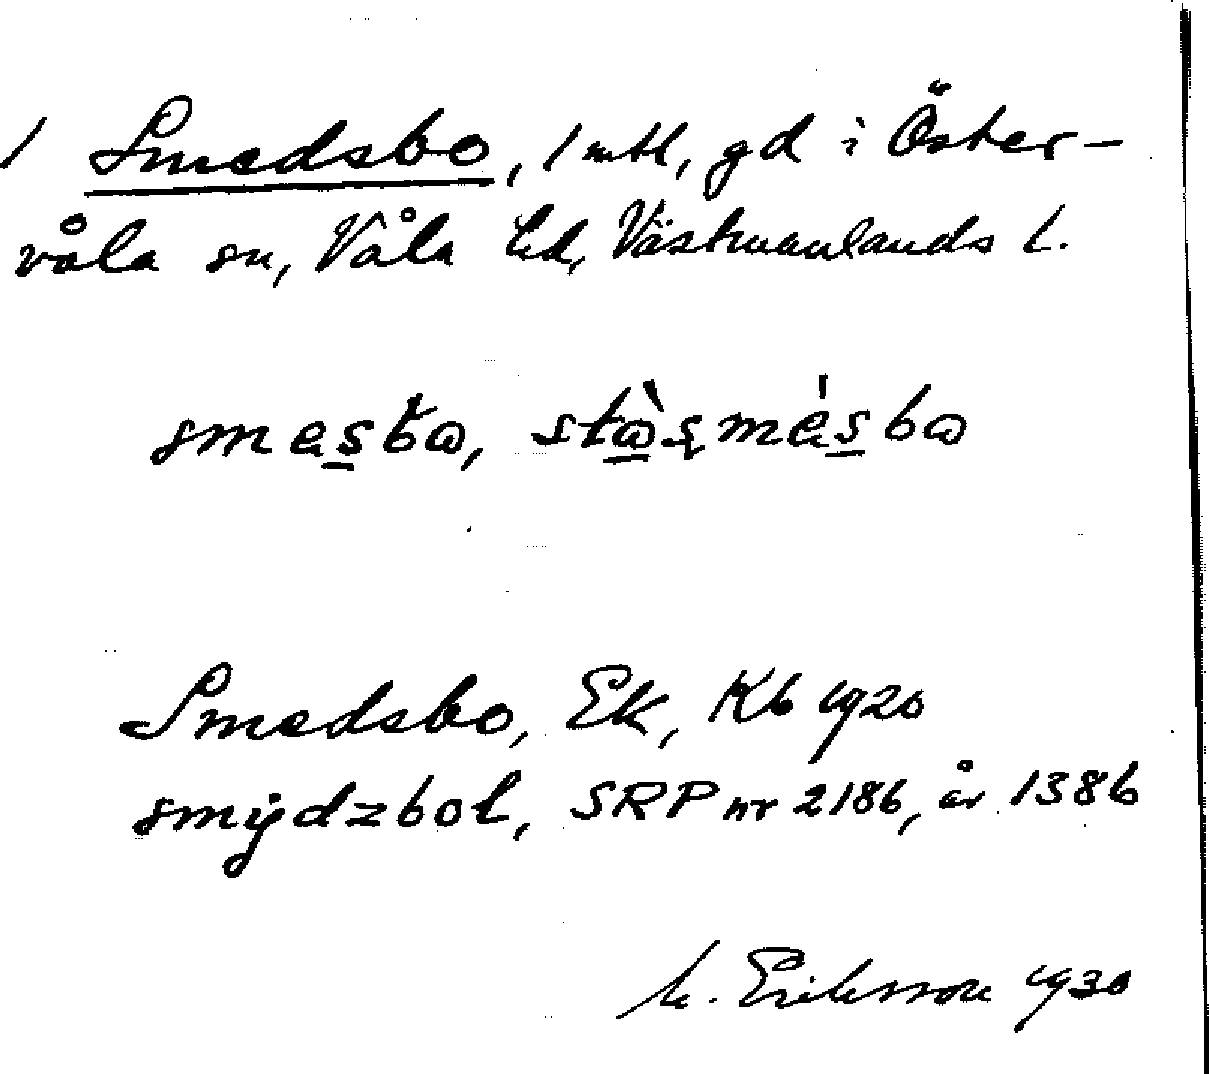 1 Smedsbo, 1 mtl, gd i Öster-
våla sn, Våla hd, Västmanlands l.
smesbɷ, stɷ̀smésbɷ
Smedsbo, Ek, Kb 1920
smÿdzbol, SRP nr 2186, år 1386
M. Eriksson 1930